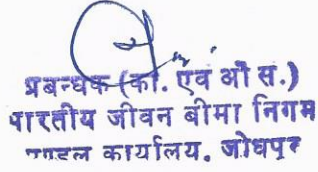 प्रबन्धक (का. एवं औ सं.)
भारतीय जीवन बीमा निगम
मण्डल कार्यालय. जोधपुर